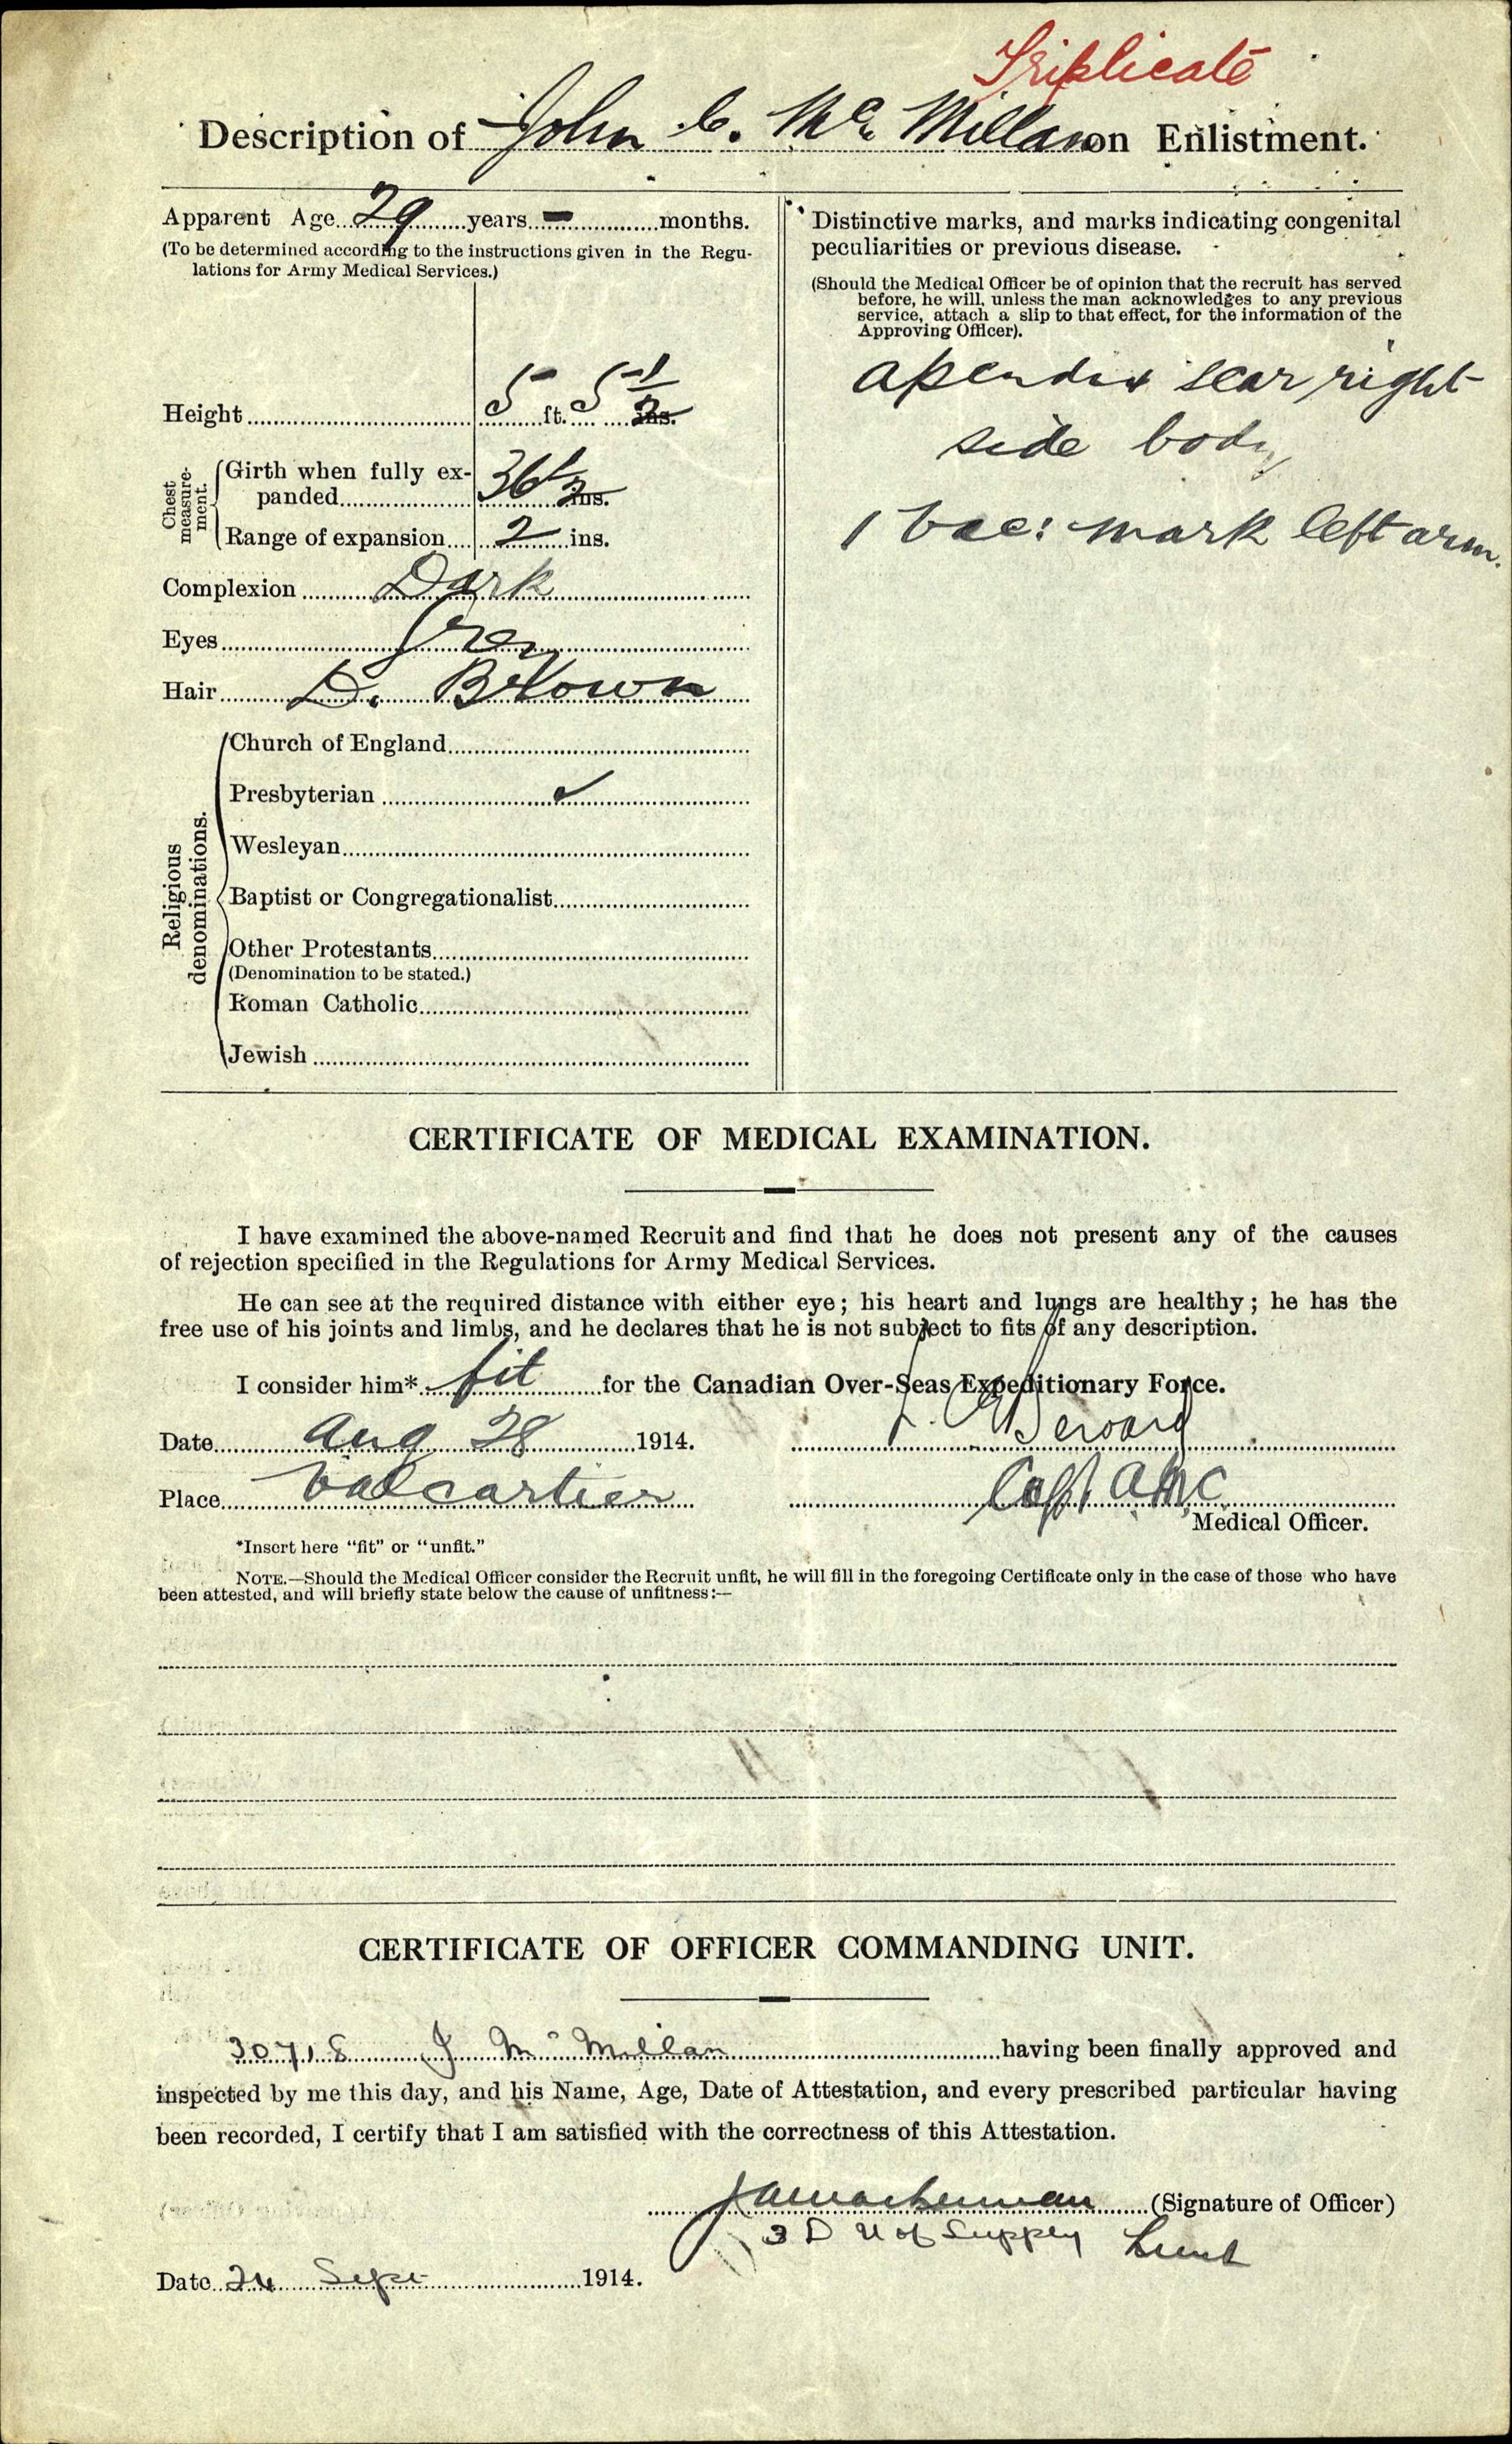 Triplicate
Description of John C. Mc Millan on Enlistment.
Apparent Age 29 years - months.
(To be determined according to the instructions given in the Regu-
lations for Army Medical Services.)
Height 5 ft. 5 1/2 ins.
Chest measure-ment.
Girth when fully ex-
panded 36 1/2 ins.
Range of expansion 2 ins.
Complexion Dark
Eyes Grey
Hair D. Brown
Religious denominations.
Church of England
Presbyterian ✓
Wesleyan
Baptist or Congregationalist
Other Protestants
(Denomination to be stated.)
Roman Catholic
Jewish
Distinctive marks, and marks indicating congenital
peculiarities or previous disease.
(Should the Medical Officer be of opinion that the recruit has served
before, he will, unless the man acknowledges to any previous
service, attach a slip to that effect, for the information of the
Approving Officer).
apendix scar right
side body
1 vac: mark left arm.
CERTIFICATE OF MEDICAL EXAMINATION.
I have examined the above-named Recruit and find that he does not present any of the causes
of rejection specified in the Regulations for Army Medical Services.
He can see at the required distance with either eye; his heart and lungs are healthy; he has the
free use of his joints and limbs, and he declares that he is not subject to fits of any description.
I consider him* fit for the Canadian Over-Seas Expeditionary Force.
Date Aug 28 1914.
Place Valcartier
Capt AMC
Medical Officer.
*Insert here "fit" or "unfit."
NOTE.—Should the Medical Officer consider the Recruit unfit, he will fill in the foregoing Certificate only in the case of those who have
been attested, and will briefly state below the cause of unfitness:—
CERTIFICATE OF OFFICER COMMANDING UNIT.
30718 J Mc Millan having been finally approved and
inspected by me this day, and his Name, Age, Date of Attestation, and every prescribed particular having
been recorded, I certify that I am satisfied with the correctness of this Attestation.
(Signature of Officer)
3 D U of Supply Lieut
Date 24 Sept 1914.